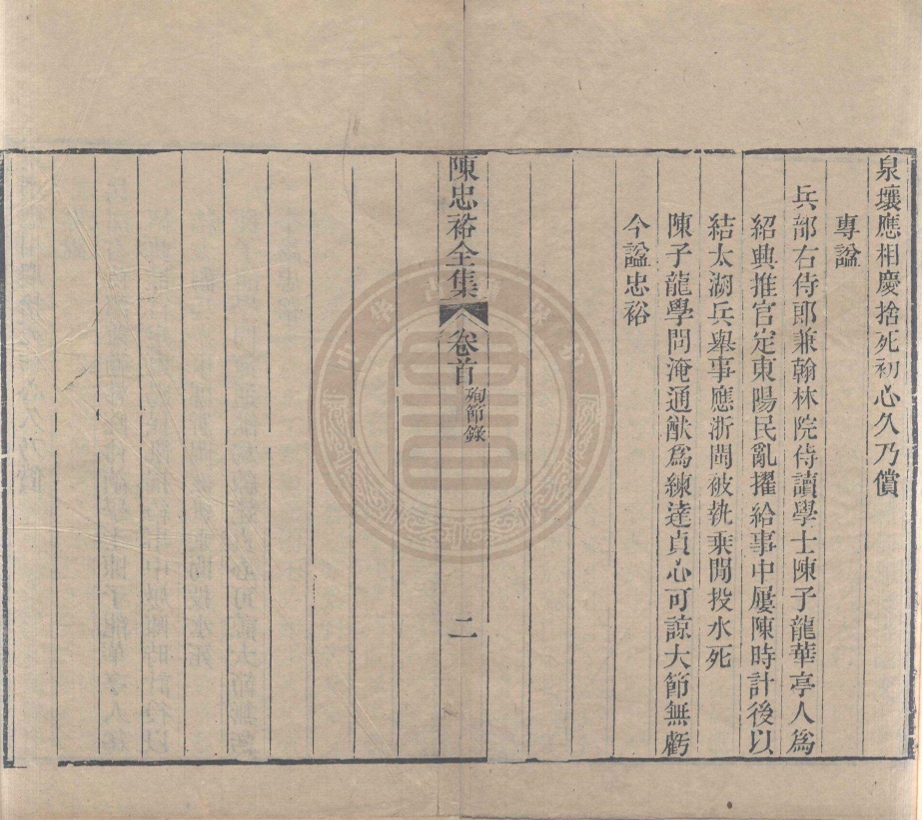 泉壤應相慶捨死初心久乃償
專謚
兵部右侍郎兼翰林院侍讀學士陳子龍華亭人爲
紹興推官定東陽民亂擢給事中屢陳時計後以
結太湖兵舉事應浙閩被執乘閒投水死
陳子龍學問淹通猷爲練達貞心可諒大節無虧
今謚忠裕
陳忠裕全集 卷首 殉節錄 二